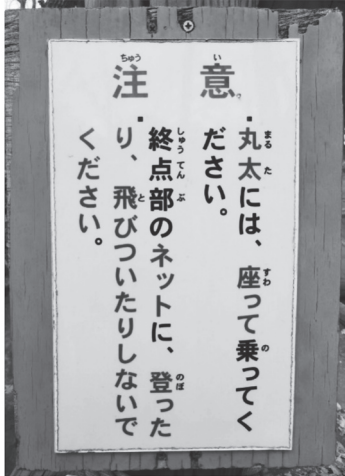 注意
・丸太には、座って乗ってく
ださい。
・終点部のネットに、登った
り、飛びついたりしないで
ください。